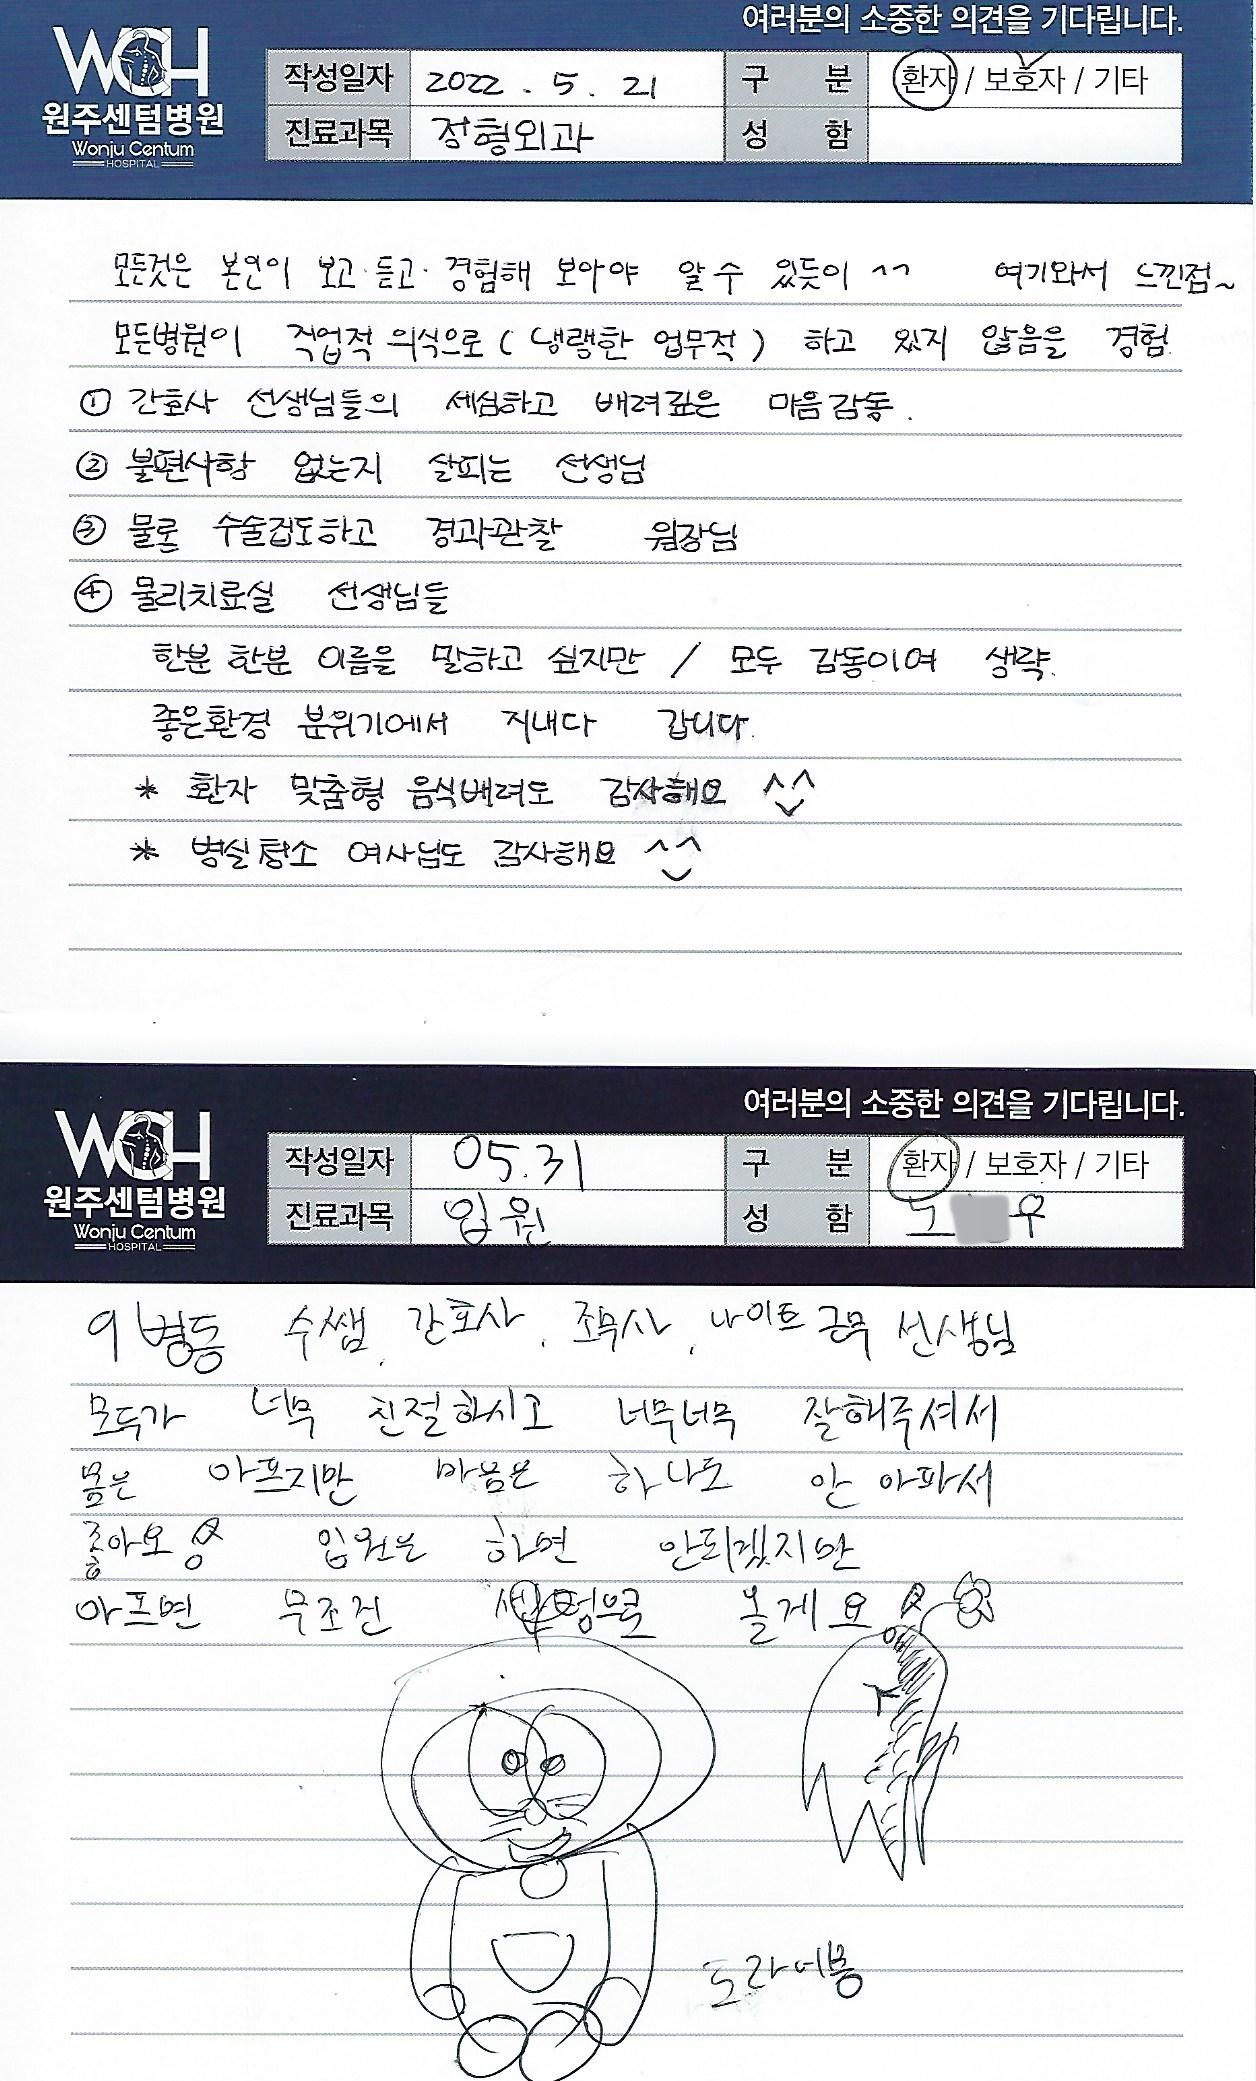 여러분의 소중한 의견을 기다립니다.
WCH
원주센텀병원
Wonju Centum
HOSPITAL
작성일자 2022 . 5 . 21 구 분 환자 / 보호자 / 기타
진료과목 정형외과 성 함
모든것은 본인이 보고·듣고·경험해 보아야 알 수 있듯이 ^^ 여기와서 느낀점~
모든병원이 직업적 의식으로 ( 냉랭한 업무적 ) 하고 있지 않음을 경험
① 간호사 선생님들의 세심하고 배려깊은 마음감동.
② 불편사항 없는지 살피는 선생님
③ 물론 수술집도하고 경과관찰 원장님
④ 물리치료실 선생님들
한분 한분 이름을 말하고 싶지만 / 모두 감동이여 생략.
좋은환경 분위기에서 지내다 갑니다.
* 환자 맞춤형 음식배려도 감사해요 ^^
* 병실청소 여사님도 감사해요 ^^
여러분의 소중한 의견을 기다립니다.
WCH
원주센텀병원
Wonju Centum
HOSPITAL
작성일자 05.31 구 분 환자 / 보호자 / 기타
진료과목 입원 성 함 노 우
병동 수쌤, 간호사, 조무사, 나이트 근무 선생님
모두가 너무 친절하시고 너무너무 잘해주셔서
몸은 아프지만 마음은 하나도 안 아파서
좋아요 입원은 하면 안되겠지만
아프면 무조건 센텀으로 올게요
도라에몽